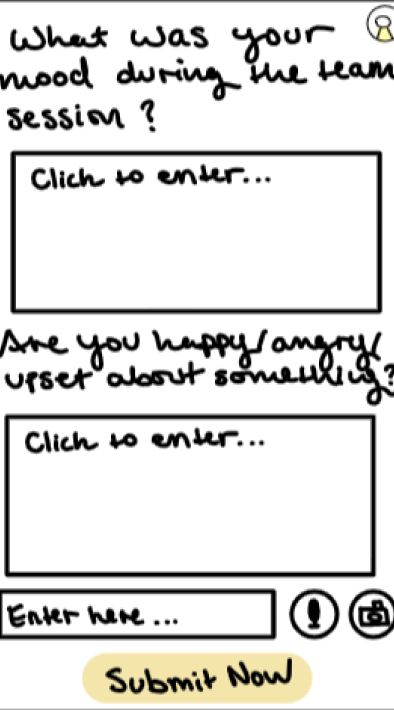 What was your
mood during the team
session?
Click to enter...
Are you happy/angry/
upset about something?
Click to enter...
Enter here...
Submit Now